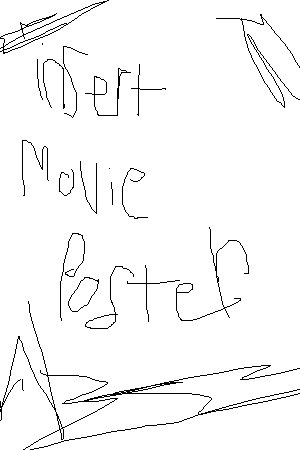 insert
Movie
Poster